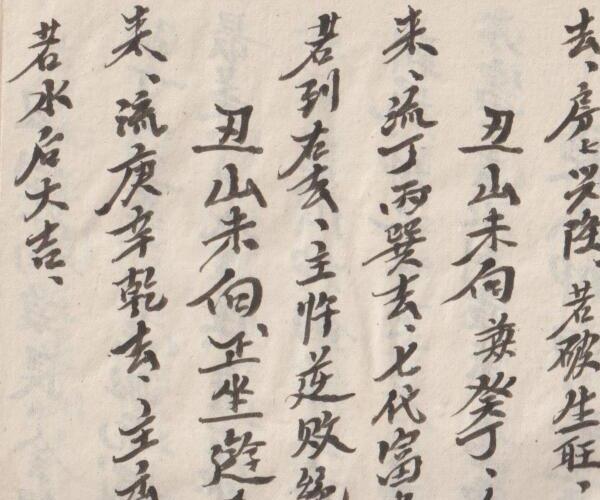 去、房々兴隆、若破生旺、
丑山未向兼癸丁、
来、流丁丙巽去、七代富
若到右去、主忤逆败绝
丑山未向正坐
来、流庚辛乾去、主
若水后大吉、